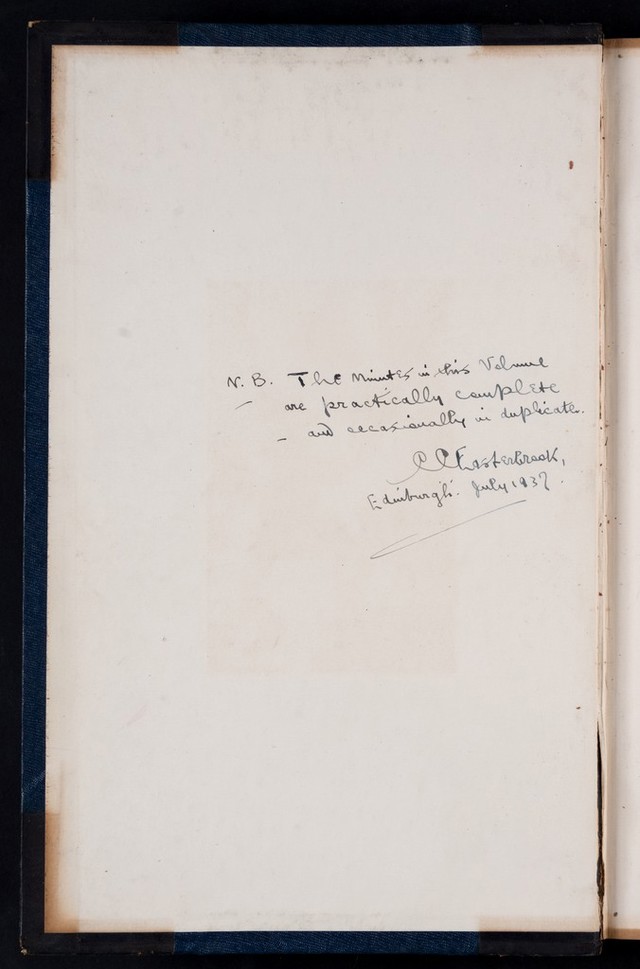 N. B. The Minutes in this Volume
are practically complete
– and occasionally in duplicate.
C C Easterbrook,
Edinburgh. July 1937.